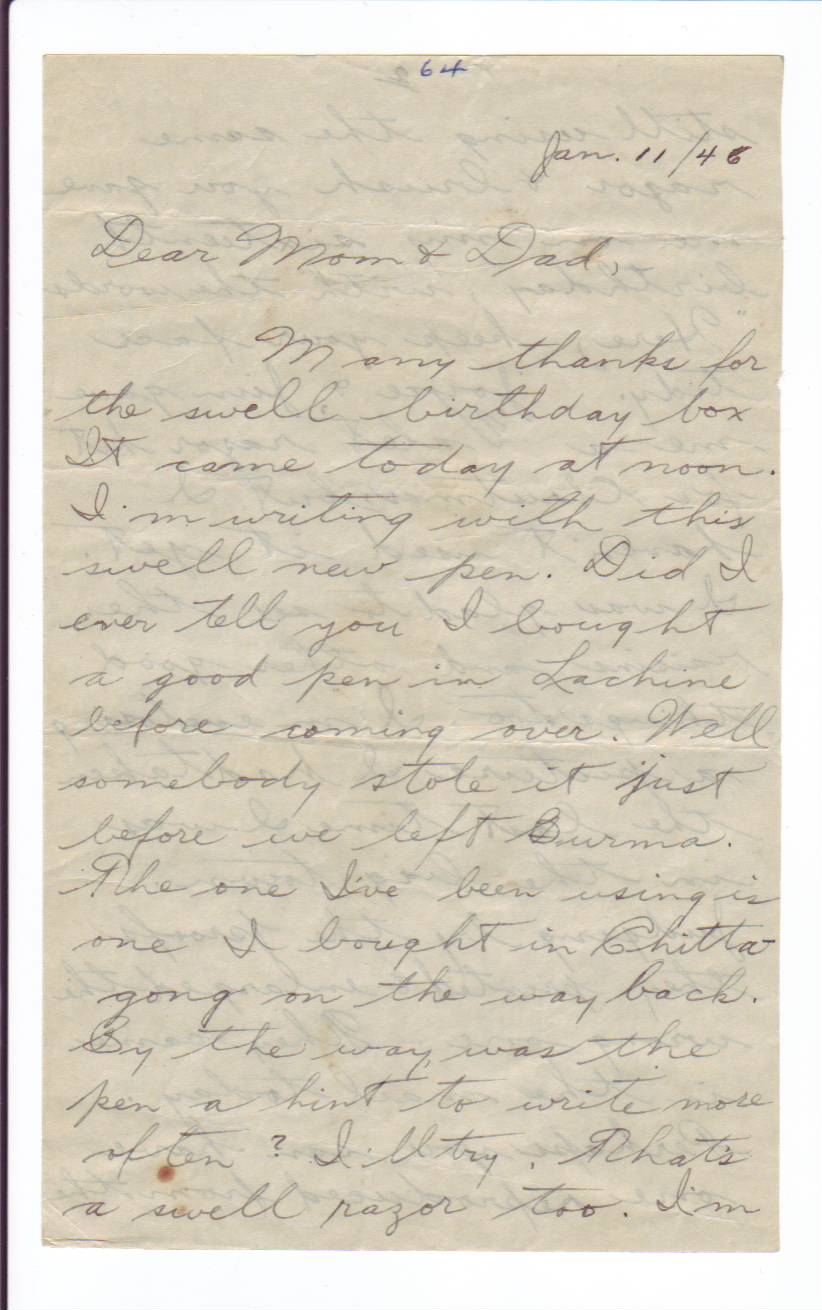 64
Jan. 11/46
Dear Mom & Dad,
Many thanks for
the swell birthday box
It came today at noon.
I'm writing with this
swell new pen. Did I
ever tell you I bought
a good pen in Lachine
before coming over. Well
somebody stole it just
before we left Burma.
The one I've been using is
one I bought in Chitta-
gong on the way back.
By the way, was the
pen a hint to write more
often? I'll try. That's
a swell razor too. I'm